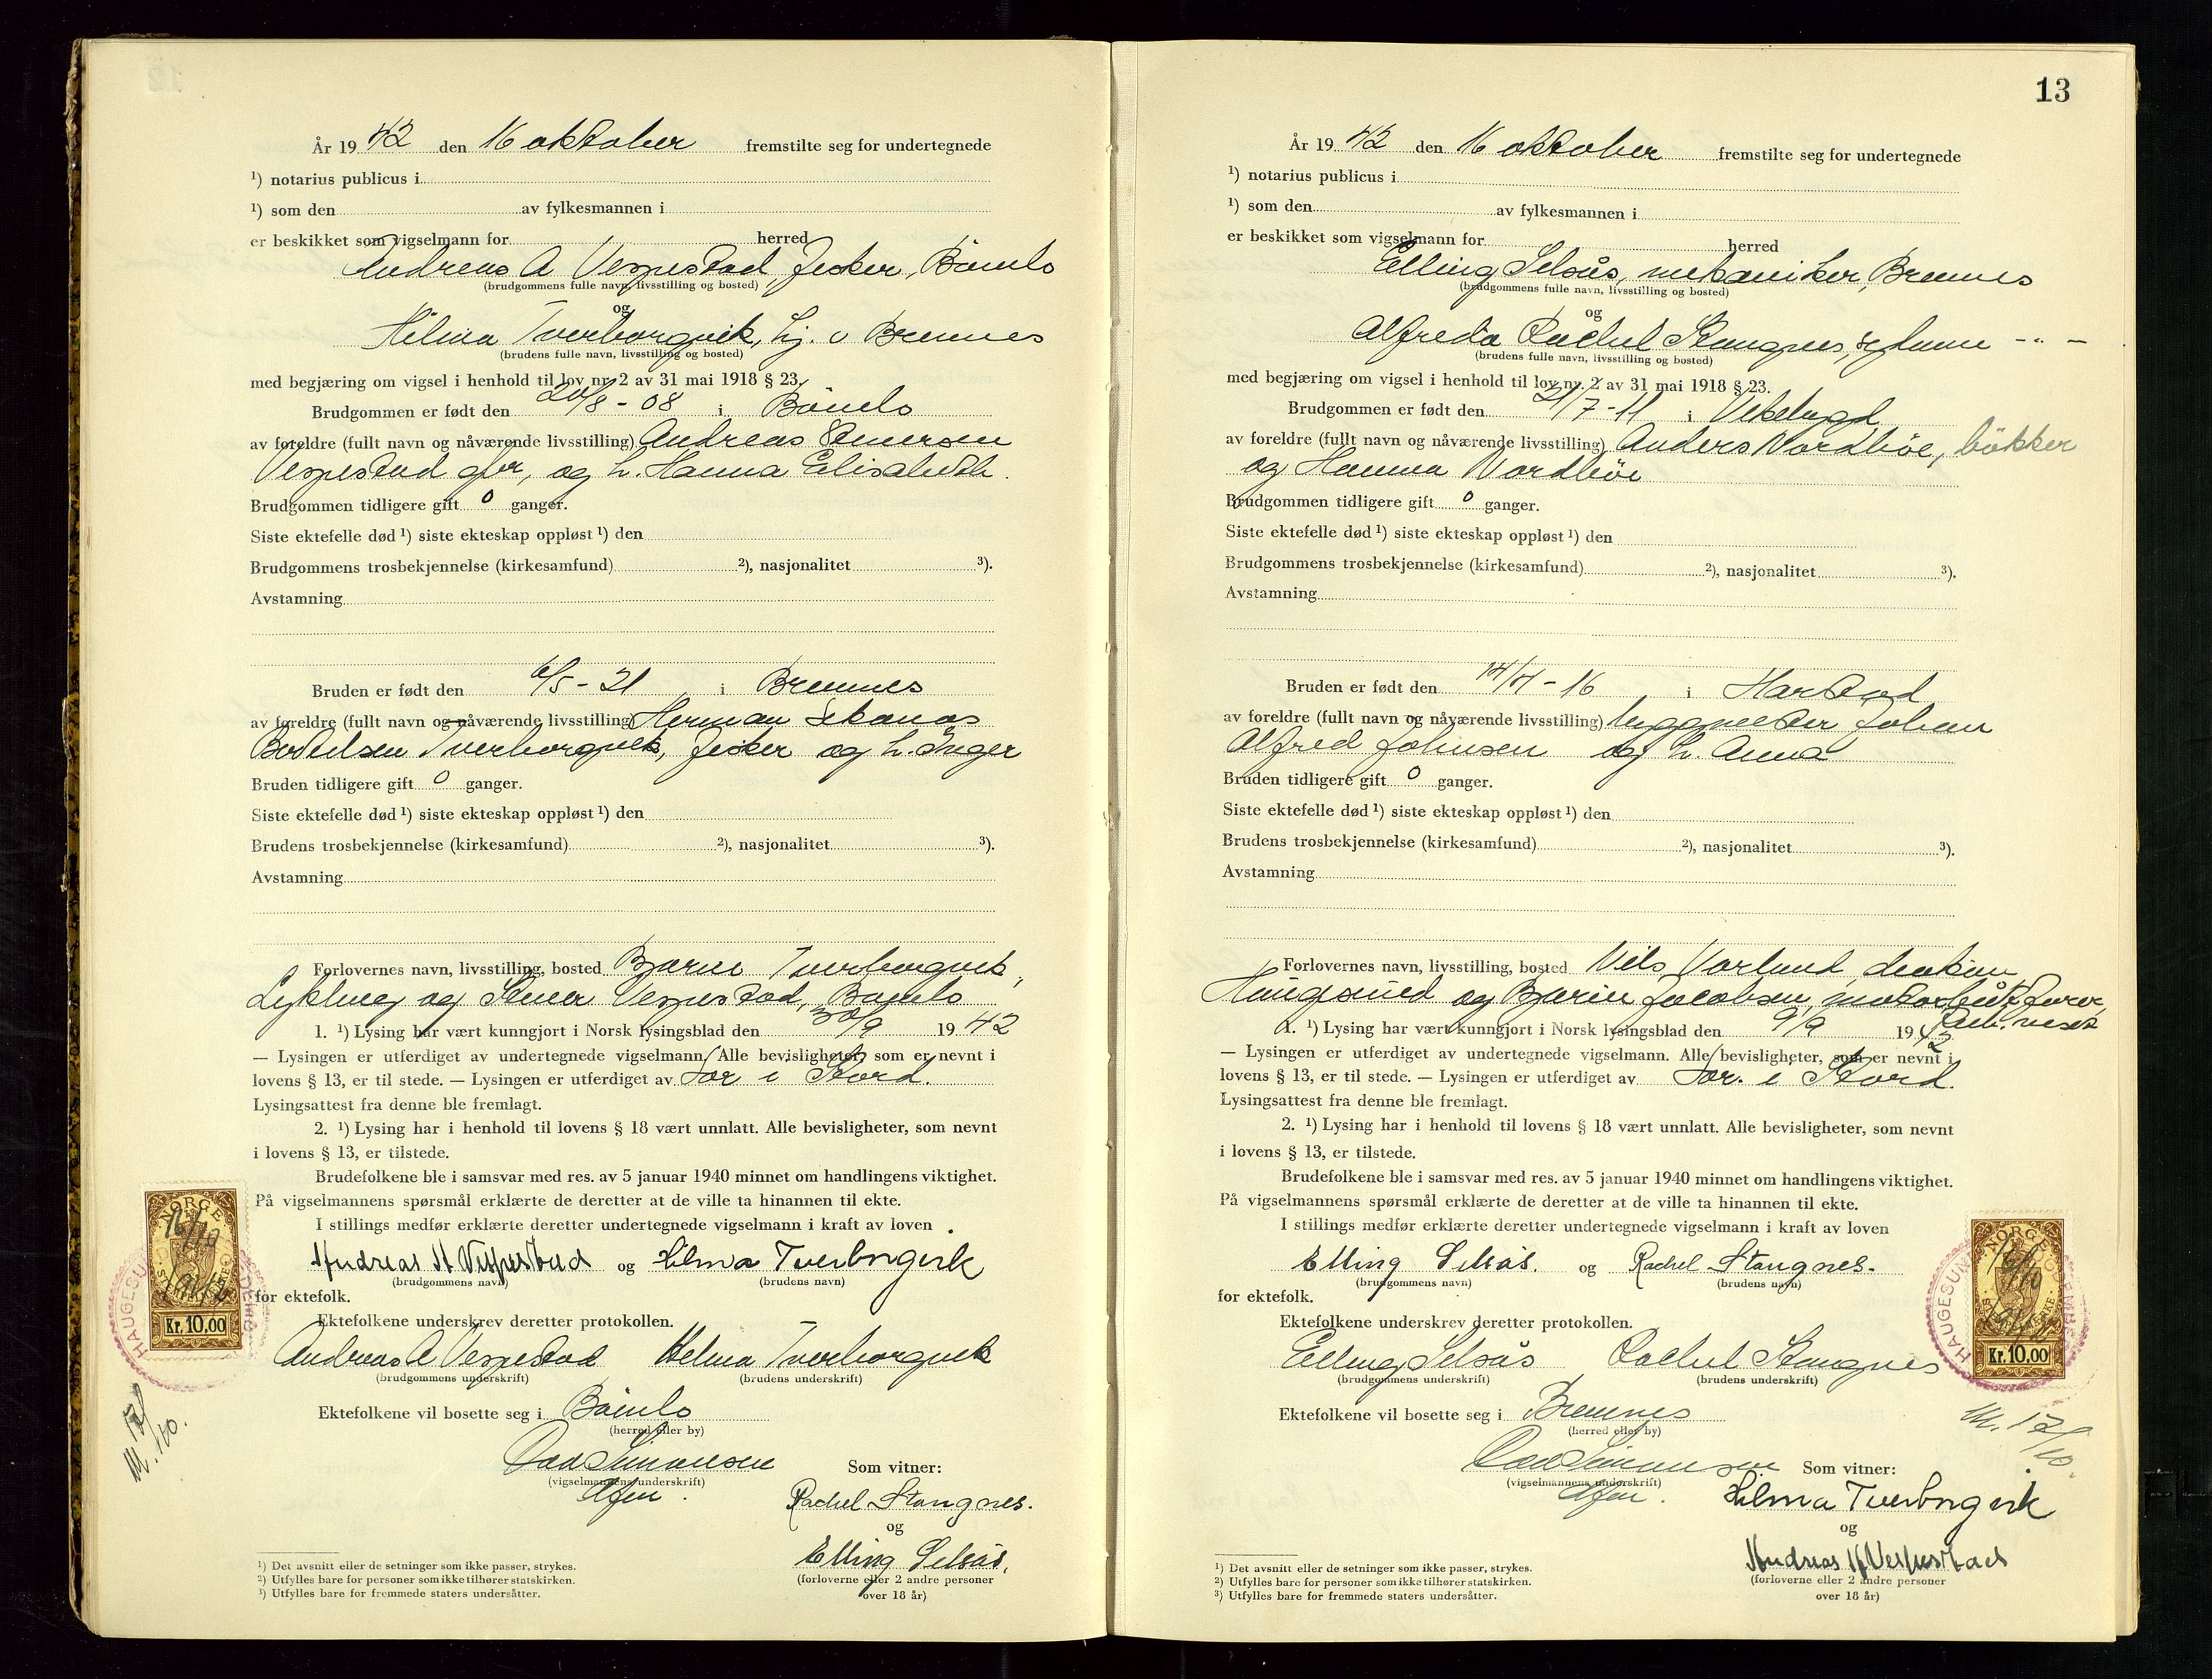 År 19 42 den 16 oktober fremstilte seg for undertegnede
¹) notarius publicus i
¹) som den av fylkesmannen i
er beskikket som vigselmann for herred
Andreas A Vespestad, fisker, Bömlo
(brudgommens fulle navn, livsstilling og bosted)
og
Hilma Tverborgvik, hj. v Bremnes
(brudens fulle navn, livsstilling og bosted)
med begjæring om vigsel i henhold til lov nr. 2 av 31 mai 1918 § 23.
Brudgommen er født den 20/8 - 08 i Bömlo
av foreldre (fullt navn og nåværende livsstilling) Andreas
Vespestad gbr, og h. Hanna Elisabeth.
Brudgommen tidligere gift 0 ganger.
Siste ektefelle død ¹) siste ekteskap oppløst ¹) den
Brudgommens trosbekjennelse (kirkesamfund) ²), nasjonalitet ³).
Avstamning
Bruden er født den 6/5 - 21 i Bremnes
av foreldre (fullt navn og nåværende livsstilling) Herman
Tverborgvik, fisker og h. Inger
Bruden tidligere gift 0 ganger.
Siste ektefelle død ¹) siste ekteskap oppløst ¹) den
Brudens trosbekjennelse (kirkesamfund) ²), nasjonalitet ³).
Avstamning
Forlovernes navn, livsstilling, bosted Bjarne Tverborgvik,
Lykling og Stener Vespestad, Bömlo
1. ¹) Lysing har vært kunngjort i Norsk lysingsblad den 30/9 19 42
— Lysingen er utferdiget av undertegnede vigselmann. Alle bevisligheter, som er nevnt i
lovens § 13, er til stede. — Lysingen er utferdiget av Sor i Stord.
Lysingsattest fra denne ble fremlagt.
2. ¹) Lysing har i henhold til lovens § 18 vært unnlatt. Alle bevisligheter, som nevnt
i lovens § 13, er tilstede.
Brudefolkene ble i samsvar med res. av 5 januar 1940 minnet om handlingens viktighet.
På vigselmannens spørsmål erklærte de deretter at de ville ta hinannen til ekte.
I stillings medfør erklærte deretter undertegnede vigselmann i kraft av loven
Andreas A Vespestad og Hilma Tverborgvik
(brudgommens navn) (brudens navn)
for ektefolk.
NORGE
16/10
1942
Kr. 10.00
HAUGESUND
Ektefolkene underskrev deretter protokollen.
Andreas A Vespestad Hilma Tverborgvik
(brudgommens underskrift) (brudens underskrift)
Ektefolkene vil bosette seg i Bömlo
(herred eller by)
Simonsen
(vigselmannens underskrift)
Som vitner:
Rachel Stangnes.
og
Elling Selsås.
(forloverne eller 2 andre personer
over 18 år)
¹) Det avsnitt eller de setninger som ikke passer, strykes.
²) Utfylles bare for personer som ikke tilhører statskirken.
³) Utfylles bare for fremmede staters undersåtter.
13
År 19 42 den 16 oktober fremstilte seg for undertegnede
¹) notarius publicus i
¹) som den av fylkesmannen i
er beskikket som vigselmann for herred
Elling Selsås, mekaniker, Bremnes
(brudgommens fulle navn, livsstilling og bosted)
og
Alfreda Rachel Stangnes, syerske - " -
(brudens fulle navn, livsstilling og bosted)
med begjæring om vigsel i henhold til lov nr. 2 av 31 mai 1918 § 23.
Brudgommen er født den 21/7 - 11 i Vikebygd
av foreldre (fullt navn og nåværende livsstilling) Anders Nordböe, bökker
og Hanna Nordböe
Brudgommen tidligere gift 0 ganger.
Siste ektefelle død ¹) siste ekteskap oppløst ¹) den
Brudgommens trosbekjennelse (kirkesamfund) ²), nasjonalitet ³).
Avstamning
Bruden er født den 14/4 - 16 i Harstad
av foreldre (fullt navn og nåværende livsstilling) byggmester Johan
Alfred Johnsen og h. Anna
Bruden tidligere gift 0 ganger.
Siste ektefelle død ¹) siste ekteskap oppløst ¹) den
Brudens trosbekjennelse (kirkesamfund) ²), nasjonalitet ³).
Avstamning
Forlovernes navn, livsstilling, bosted Nils Vorland, diakon,
Haugesund og Bjarne Jacobsen,
1. ¹) Lysing har vært kunngjort i Norsk lysingsblad den 9/9 19 42
— Lysingen er utferdiget av undertegnede vigselmann. Alle bevisligheter, som er nevnt i
lovens § 13, er til stede. — Lysingen er utferdiget av Sor. i Stord.
Lysingsattest fra denne ble fremlagt.
2. ¹) Lysing har i henhold til lovens § 18 vært unnlatt. Alle bevisligheter, som nevnt
i lovens § 13, er tilstede.
Brudefolkene ble i samsvar med res. av 5 januar 1940 minnet om handlingens viktighet.
På vigselmannens spørsmål erklærte de deretter at de ville ta hinannen til ekte.
I stillings medfør erklærte deretter undertegnede vigselmann i kraft av loven
Elling Selsås. og Rachel Stangnes.
(brudgommens navn) (brudens navn)
for ektefolk.
NORGE
16/10
1942
Kr. 10.00
HAUGESUND
Ektefolkene underskrev deretter protokollen.
Elling Selsås Rachel Stangnes
(brudgommens underskrift) (brudens underskrift)
Ektefolkene vil bosette seg i Bremnes
(herred eller by)
M. 12/10.
Simonsen
(vigselmannens underskrift)
Som vitner:
Hilma Tverborgvik
og
Andreas A Vespestad
(forloverne eller 2 andre personer
over 18 år)
¹) Det avsnitt eller de setninger som ikke passer, strykes.
²) Utfylles bare for personer som ikke tilhører statskirken.
³) Utfylles bare for fremmede staters undersåtter.